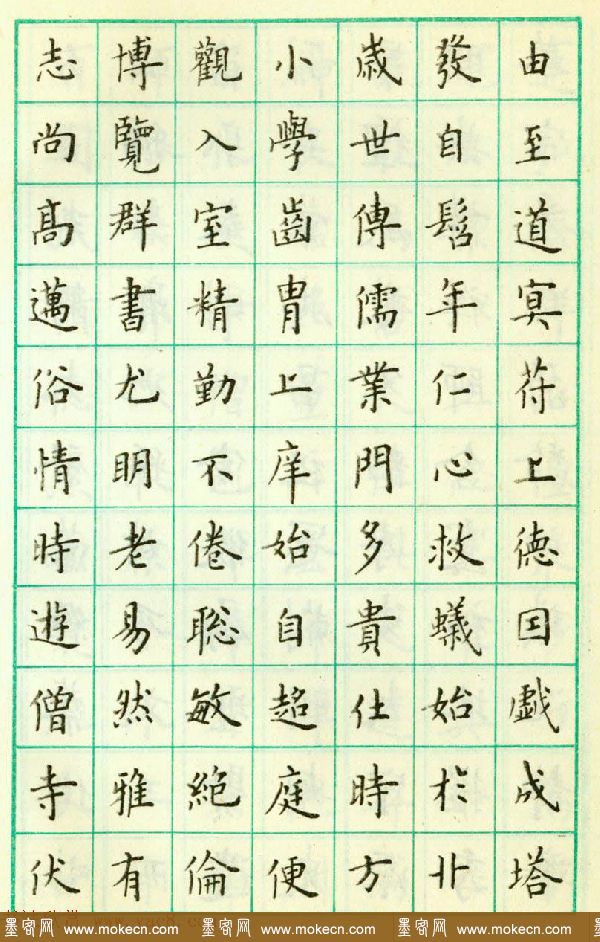 由至道冥苻上德囙戲成塔
發自髫年仁心救蟻始於卝
歲世傳儒業門多貴仕時方
小學齒胄上庠始自趍庭便
觀入室精勤不倦聡敏絶倫
博覽群書尤明老易然雅有
志尚髙邁俗情時遊僧寺伏
墨客网 www.mokecn.com 墨客网 www.mokecn.com 墨客网 www.mokecn.com 墨客网